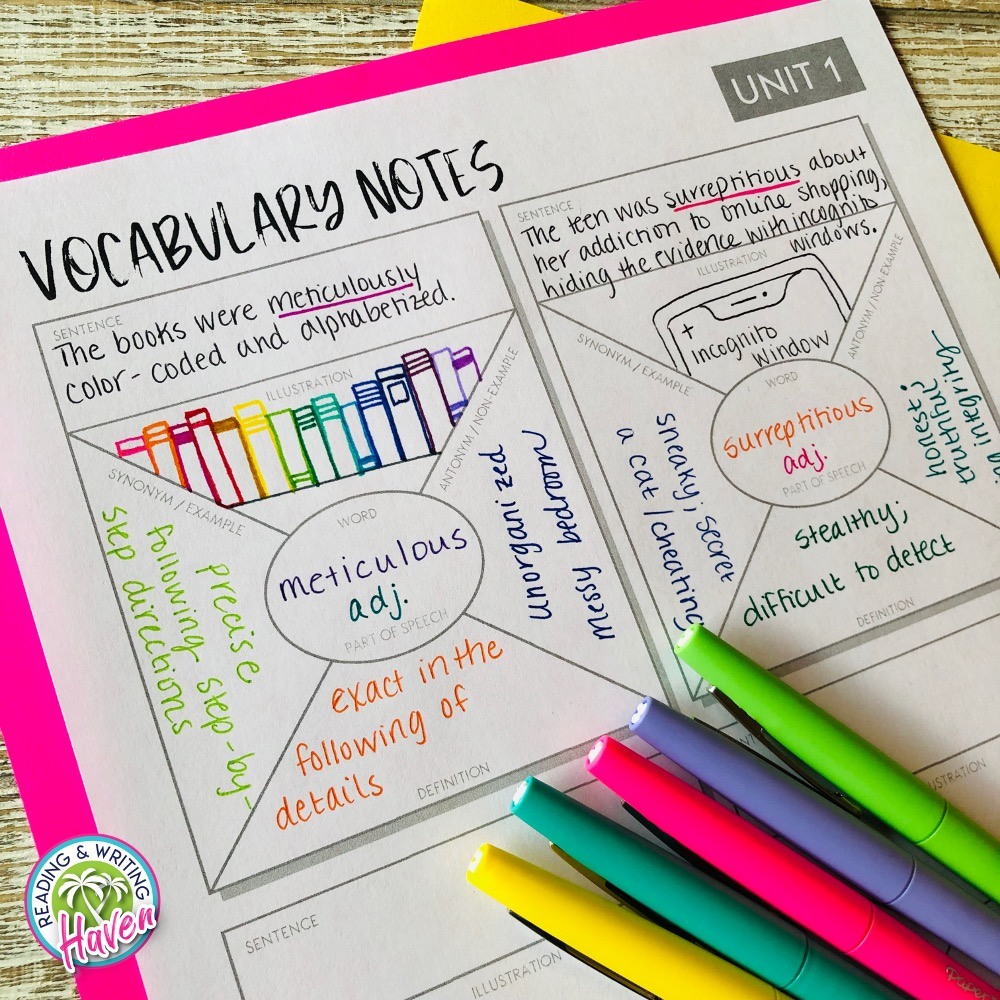 UNIT 1
VOCABULARY NOTES
SENTENCE
The books were meticulously
color-coded and alphabetized.
ILLUSTRATION
SYNONYM / EXAMPLE
precise
following step-by-
step directions
ANTONYM / NON-EXAMPLE
unorganized
messy bedroom
WORD
meticulous
adj.
PART OF SPEECH
exact in the
following of
details
DEFINITION
SENTENCE
The teen was surreptitious about
her addiction to online shopping,
hiding the evidence with incognito
windows.
ILLUSTRATION
+
Incognito
Window
SYNONYM / EXAMPLE
sneaky, secret
a cat / cheating
ANTONYM / NON-EXAMPLE
honest;
truthful;
WORD
surreptitious
adj.
PART OF SPEECH
stealthy;
difficult to detect
DEFINITION
SENTENCE
ILLUSTRATION
ILLUSTRATION
READING & WRITING
Haven